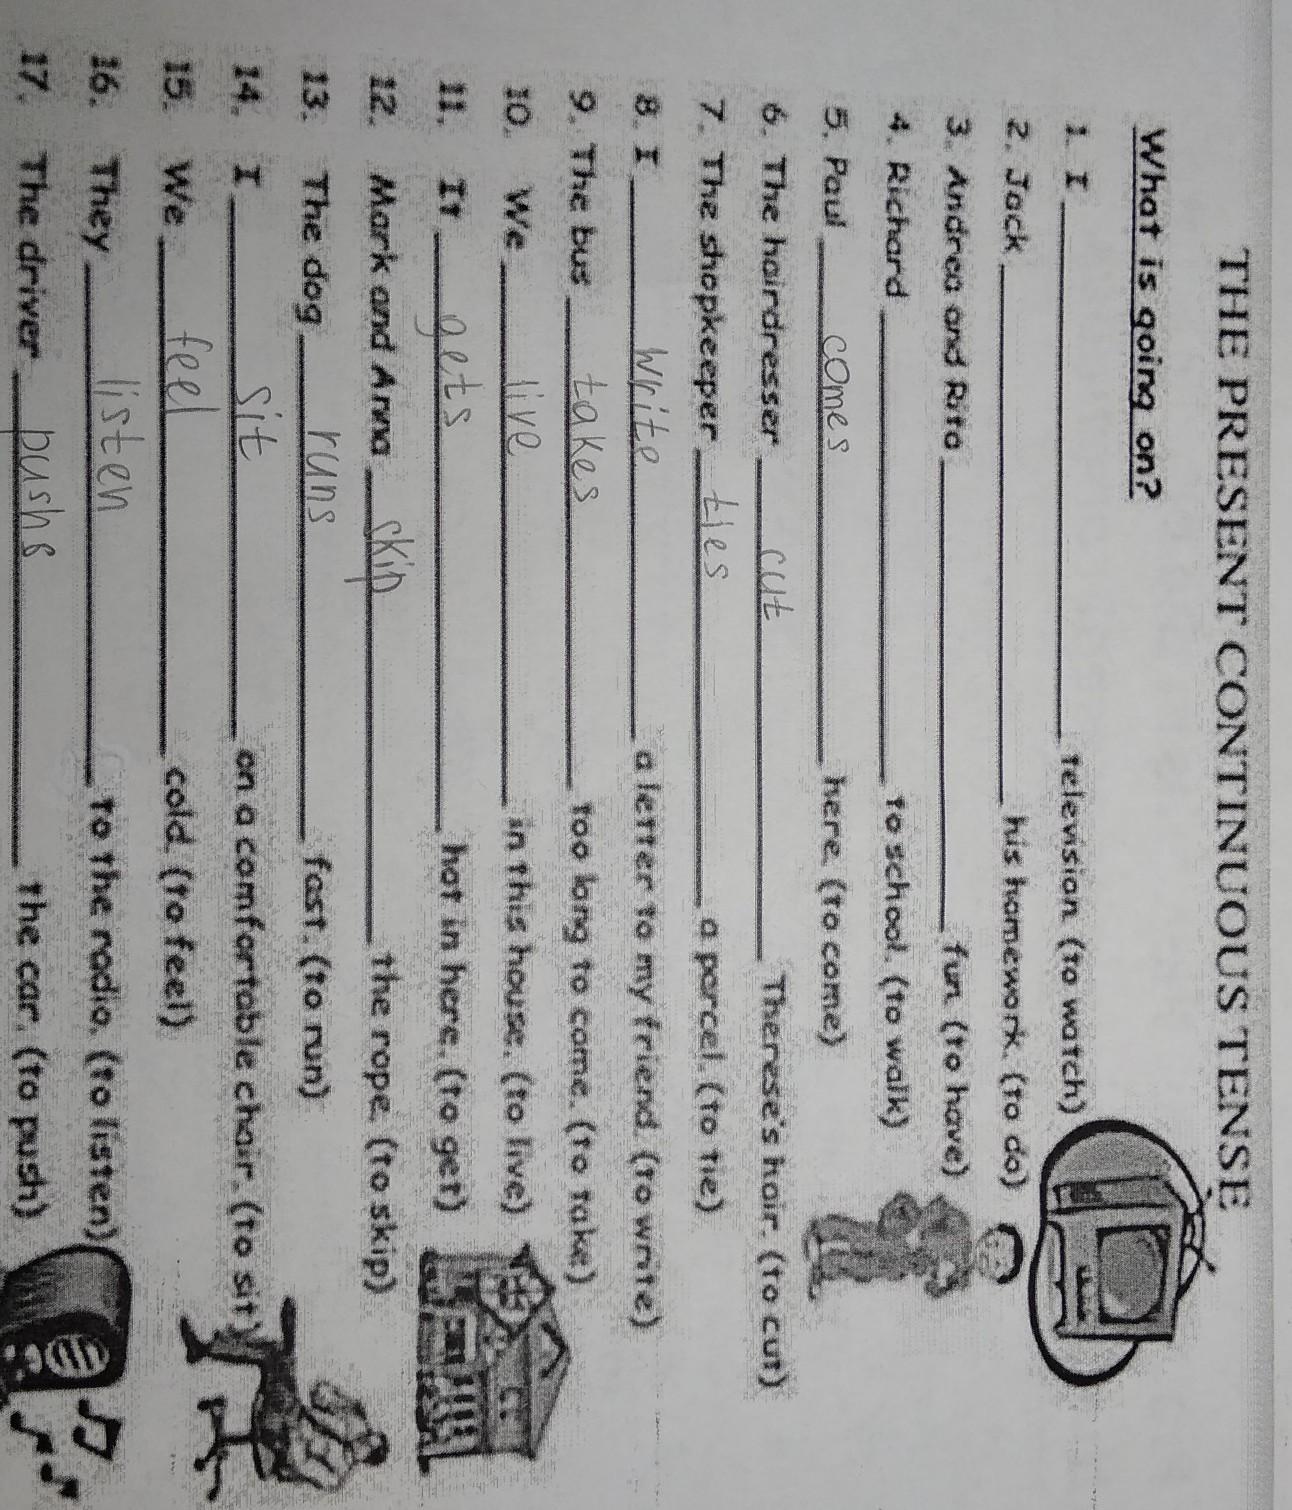 THE PRESENT CONTINUOUS TENSE
What is going on?
1. I ____ television. (to watch)
2. Jack ____ his homework. (to do)
3. Andrea and Rita ____ fun. (to have)
4. Richard ____ to school. (to walk)
5. Paul comes here. (to come)
6. The hairdresser cut Therese's hair. (to cut)
7. The shopkeeper ties a parcel. (to tie)
8. I write a letter to my friend. (to write)
9. The bus takes too long to come. (to take)
10. We live in this house. (to live)
11. It gets hot in here. (to get)
12. Mark and Anna skip the rope. (to skip)
13. The dog runs fast. (to run)
14. I sit on a comfortable chair. (to sit)
15. We feel cold. (to feel)
16. They listen to the radio. (to listen)
17. The driver pushs the car. (to push)